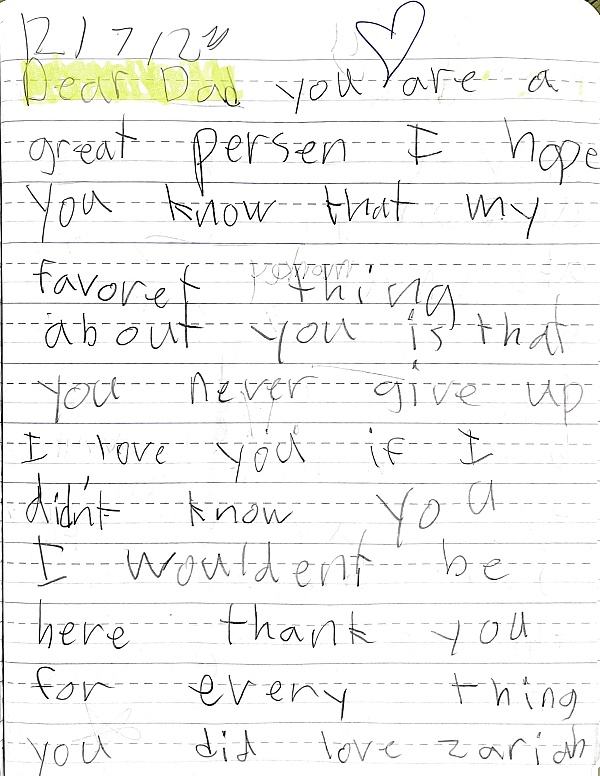 Dear Dad you are a
great persen I hope
you know that my
favoret thing
about you is that
you never give up
I love you if I
didn't know you
I wouldent be
here thank you
for every thing
you did love zariah